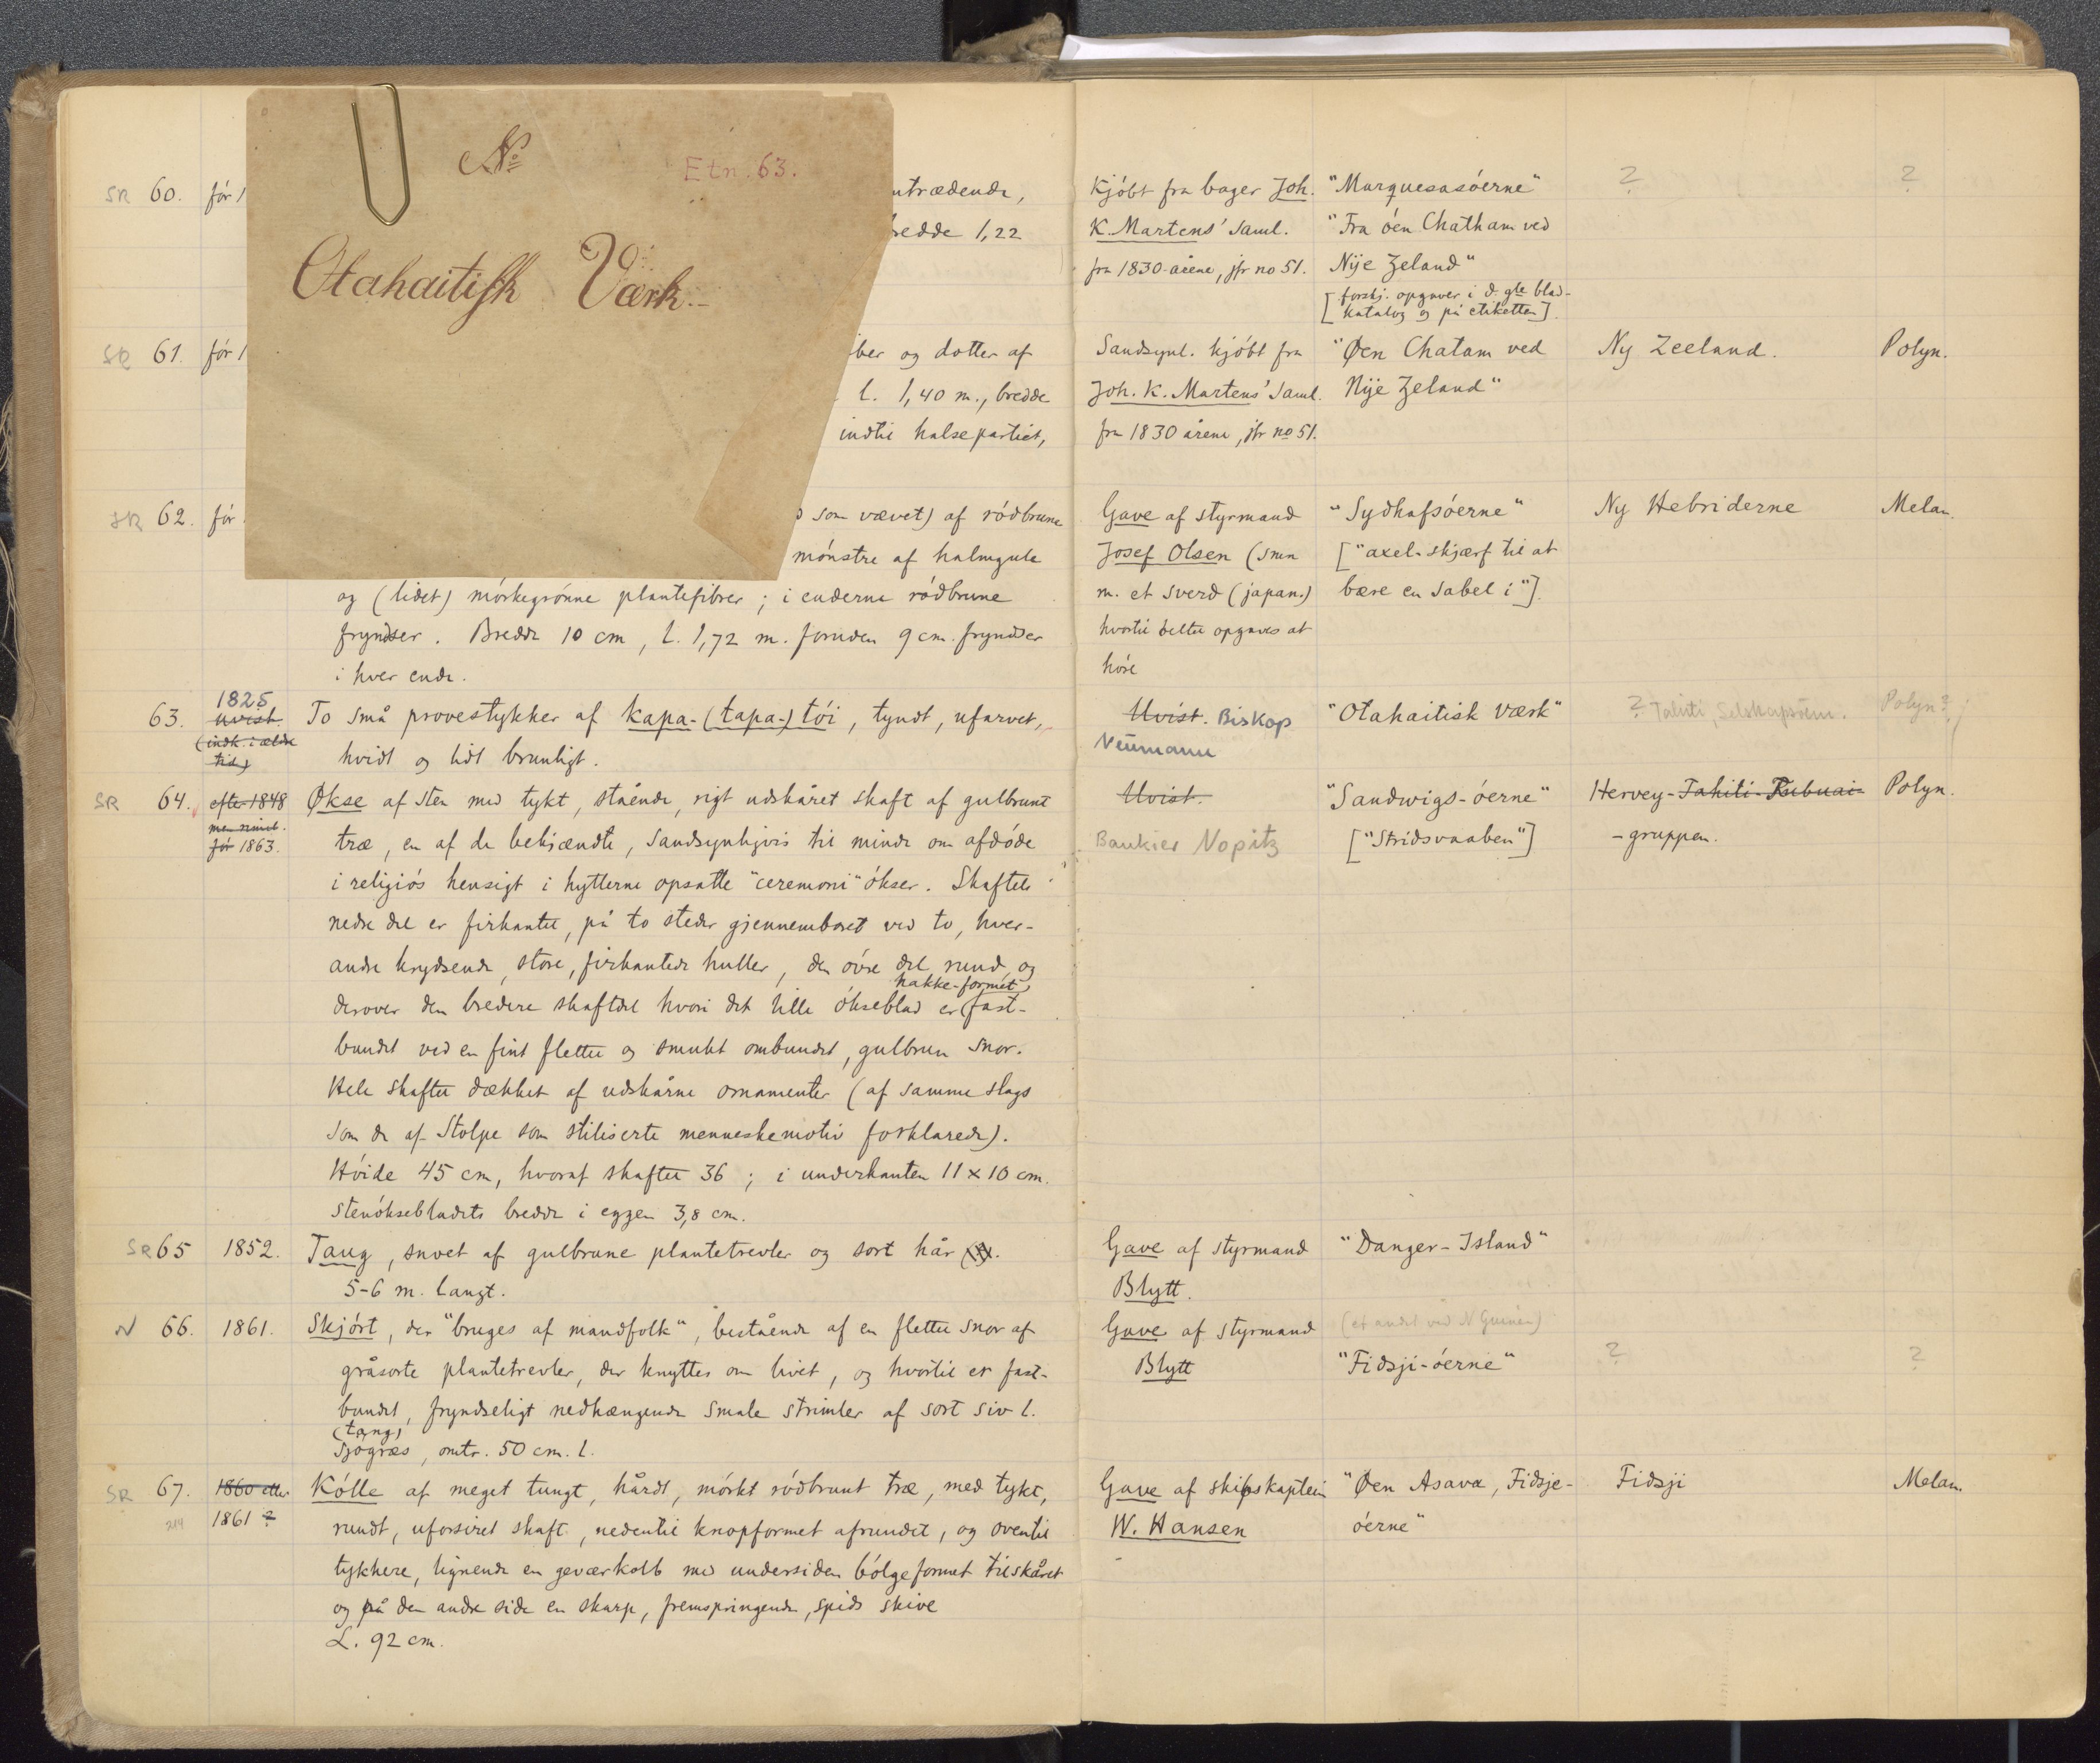 No
Etn. 63.
Otahaitisk Værk.
SR 60. før 1
ntrædende,
bredde 1,22
Kjöbt fra bager Joh.
K. Martens' saml.
fra 1830-årene, jfr no 51.
"Marquesasöerne"
"Fra öen Chatham ved
Nije Zeland"
[forskj. opgaver i d. gle blad-
katalog og på etiketten].
?
?
SR 61. før 1
og dotter af
l. 1,40 m., bredde
indtil halsepartiet,
Sandsynl. kjöbt fra
Joh. K. Martens' saml.
fra 1830 årene, jfr no 51.
"Øen Chatam ved
Nije Zeland"
Ny Zeeland.
Polyn.
SR 62. før
som vævet) af rödbrune
mönstre af halmgule
og (lidet) mörkegrönne plantefibrer; i enderne rödbrune
fryndser. Bredde 10 cm, l. 1,72 m. foruden 9 cm. fryndser
i hver ende.
Gave af styrmand
Josef Olsen (smn
m. et sverd (japan.)
hvortil beltet opgaves at
höre
"Sydhafsöerne"
["axel-skjærf til at
bære en sabel i"].
Ny Hebriderne
Melan.
63. 1825
uvist.
(indk. i ældre
tid)
To små prøvestykker af kapa- (tapa-) töi, tyndt, ufarvet,
hvidt og lidt brunligt.
Uvist. Biskop
Neumann
"Otahaitisk værk"
? Tahiti, Selskapsöene.
Polyn?
SR 64. efter 1848
men mindst.
før 1863.
Økse af sten med tykt, stående, rigt udskåret skaft af gulbrunt
træ, en af de bekjændte, sandsynligvis til minde om afdöde
i religiös hensigt i hytterne opsatte "ceremoni" ökser. Skaftets
nedre del er firkantet, på to steder gjennemboret ved to, hver-
andre krydsende, store, firkantede huller, den övre del rund, og
hakke-formet
derover den bredere skaftdel hvori det lille ökseblad er fast-
bundet ved en fint flettet og smukt ombundet, gulbrun snor.
Hele skaftet dækket af udskårne ornamenter (af samme slags
som de af Stolpe som stiliserte menneskemotiv forklarede).
Höide 45 cm, hvoraf skaftet 36; i underkanten 11 x 10 cm.
Stenöksebladets bredde i eggen 3,8 cm.
Uvist.
Bankier Nopitz
"Sandwigs-öerne"
["Stridsvaaben"]
Hervey-Tahiti-Tubuai-
-gruppen.
Polyn.
SR 65 1852.
Taug, snoet af gulbrune plantetrevler og sort hår
5-6 m. langt.
Gave af styrmand
Blytt.
"Danger-Island"
N 66. 1861.
Skjört, der "bruges af mandfolk", bestående af en flettet snor af
gråsorte plantetrevler, der knyttes om livet, og hvortil er fast-
bundet, fryndseligt nedhængende smale strimler af sort siv l.
(tang)
sjögræs, omtr. 50 cm. l.
Gave af styrmand
Blytt
(et andet ved N Guinea)
"Fidsji-öerne"
?
?
SR 67. 1860 eller
214 1861 ?
Kölle af meget tungt, hårdt, mörkt rödbrunt træ, med tykt,
rundt, uforsiret skaft, nedentil knopformet afrundet, og oventil
tykkere, lignende en geværkolb med undersiden bölgeformet tilskåret
og på den andre side en skarp, fremspringende, spids skive
L. 92 cm.
Gave af skibskaptein
W. Hansen
"Øen Asava, Fidsje-
öerne"
Fidsji
Melan.